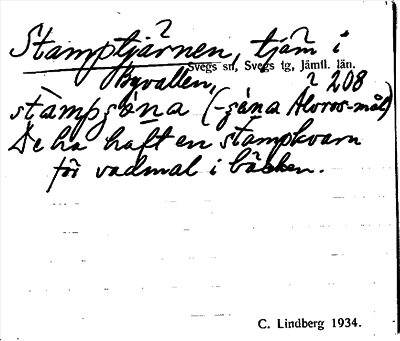 Stamptjärnen, tjärn i
Svegs sn, Svegs tg, Jämtl. län.
Byvallen, 208
De ha haft en stampkvarn
för vadmal i bäcken.
C. Lindberg 1934.